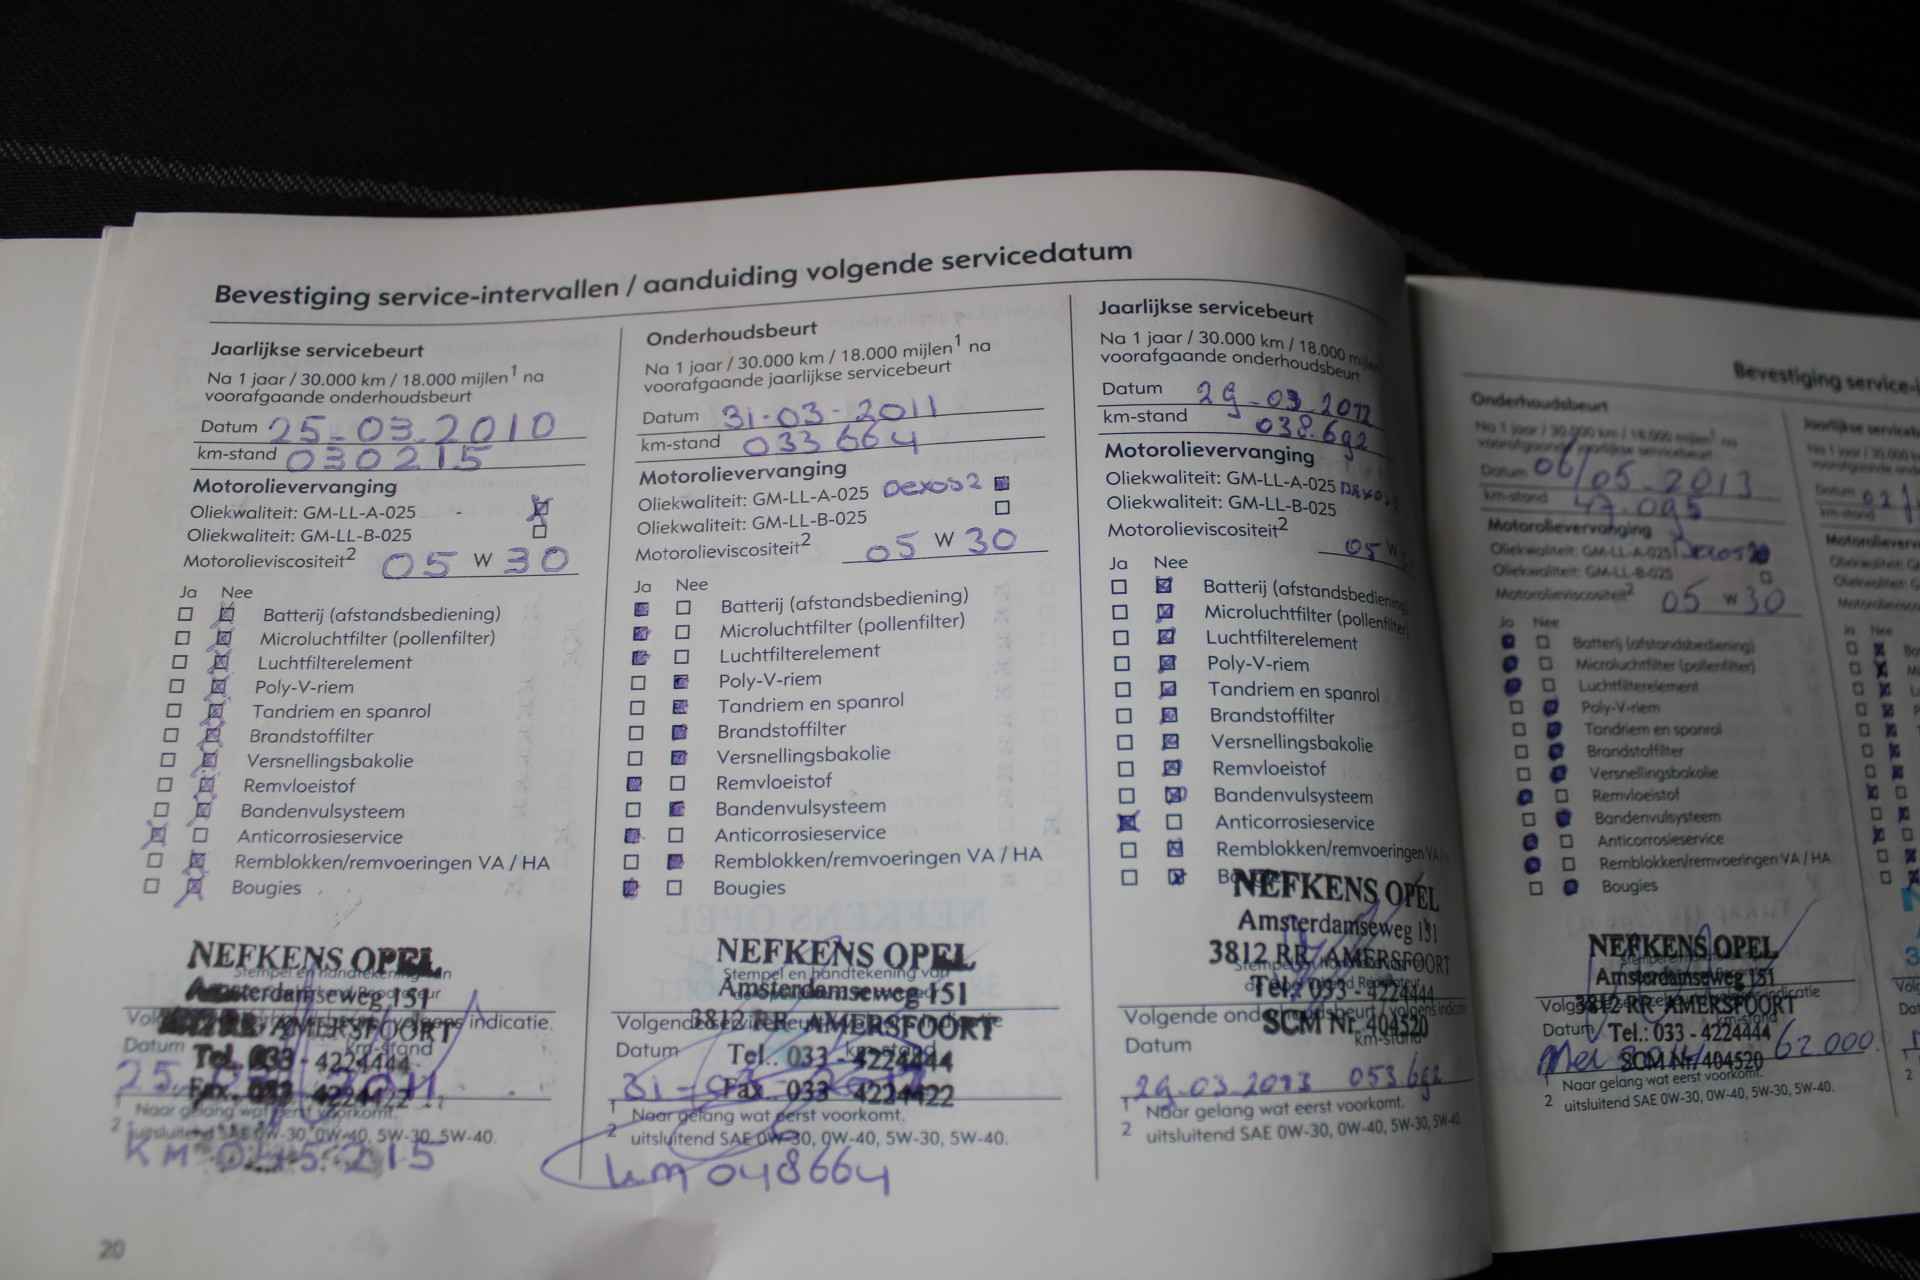 Bevestiging service-intervallen / aanduiding volgende servicedatum
Jaarlijkse servicebeurt
Na 1 jaar / 30.000 km / 18.000 mijlen1 na
voorafgaande onderhoudsbeurt
Datum 25-03-2010
km-stand 030215
Motorolievervanging
Oliekwaliteit: GM-LL-A-025
Oliekwaliteit: GM-LL-B-025
Motorolieviscositeit2 05 W 30
Ja Nee
Batterij (afstandsbediening)
Microluchtfilter (pollenfilter)
Luchtfilterelement
Poly-V-riem
Tandriem en spanrol
Brandstoffilter
Versnellingsbakolie
Remvloeistof
Bandenvulsysteem
Anticorrosieservice
Remblokken/remvoeringen VA / HA
Bougies
NEFKENS OPEL
Stempel en handtekening van
Amsterdamseweg 151
AMERSFOORT indicatie.
Datum km-stand
Tel. 033 - 4224444
Fax. 033 4224422
1 Naar gelang wat eerst voorkomt.
2 uitsluitend SAE 0W-30, 0W-40, 5W-30, 5W-40.
KM 045215
20
Onderhoudsbeurt
Na 1 jaar / 30.000 km / 18.000 mijlen1 na
voorafgaande jaarlijkse servicebeurt
Datum 31-03-2011
km-stand 033664
Motorolievervanging
Oliekwaliteit: GM-LL-A-025 Dexos2
Oliekwaliteit: GM-LL-B-025
Motorolieviscositeit2 05 W 30
Ja Nee
Batterij (afstandsbediening)
Microluchtfilter (pollenfilter)
Luchtfilterelement
Poly-V-riem
Tandriem en spanrol
Brandstoffilter
Versnellingsbakolie
Remvloeistof
Bandenvulsysteem
Anticorrosieservice
Remblokken/remvoeringen VA / HA
Bougies
NEFKENS OPEL
Stempel en handtekening van
Amsterdamseweg 151
Volgende 3812 RR AMERSFOORT
Datum km-stand
Tel.: 033 - 4224444
31-03-
Fax. 033 4224422
1 Naar gelang wat eerst voorkomt.
2 uitsluitend SAE 0W-30, 0W-40, 5W-30, 5W-40.
km 048664
Jaarlijkse servicebeurt
Na 1 jaar / 30.000 km / 18.000 mijlen
voorafgaande onderhoudsbeurt
Datum 29-03-2012
km-stand 038.692
Motorolievervanging
Oliekwaliteit: GM-LL-A-025
Oliekwaliteit: GM-LL-B-025
Motorolieviscositeit2 05 W
Ja Nee
Batterij (afstandsbediening
Microluchtfilter (pollenfilter)
Luchtfilterelement
Poly-V-riem
Tandriem en spanrol
Brandstoffilter
Versnellingsbakolie
Remvloeistof
Bandenvulsysteem
Anticorrosieservice
Remblokken/remvoeringen VA
NEFKENS OPEL
Amsterdamseweg 151
3812 RR AMERSFOORT
Tel.: 033 - 4224444
Volgende onderhoudsbeurt / volgens indicatie
SCM Nr. 404520
Datum km-stand
29-03-2013 053692
1 Naar gelang wat eerst voorkomt.
2 uitsluitend SAE 0W-30, 0W-40, 5W-30, 5W-40
Bevestiging service-i
Onderhoudsbeurt
Na 1 jaar / 30.000 km / 18.000 mijlen1 na
voorafgaande jaarlijkse servicebeurt
Datum 06/05-2013
km-stand 47.095
Motorolievervanging
Oliekwaliteit: GM-LL-A-025 Dexos2
Oliekwaliteit: GM-LL-B-025
Motorolieviscositeit2 05 W 30
Ja Nee
Batterij (afstandsbediening)
Microluchtfilter (pollenfilter)
Luchtfilterelement
Poly-V-riem
Tandriem en spanrol
Brandstoffilter
Versnellingsbakolie
Remvloeistof
Bandenvulsysteem
Anticorrosieservice
Remblokken/remvoeringen VA / HA
Bougies
NEFKENS OPEL
Amsterdamseweg 151
3812 RR AMERSFOORT
Datum km-stand
Tel.: 033 - 4224444
Mei 62.000
SCM Nr. 404520
1 Naar gelang wat eerst voorkomt.
2 uitsluitend SAE 0W-30, 0W-40, 5W-30, 5W-40.
Jaarlijkse serviceb
Datum 02
km-stand
Ja Nee